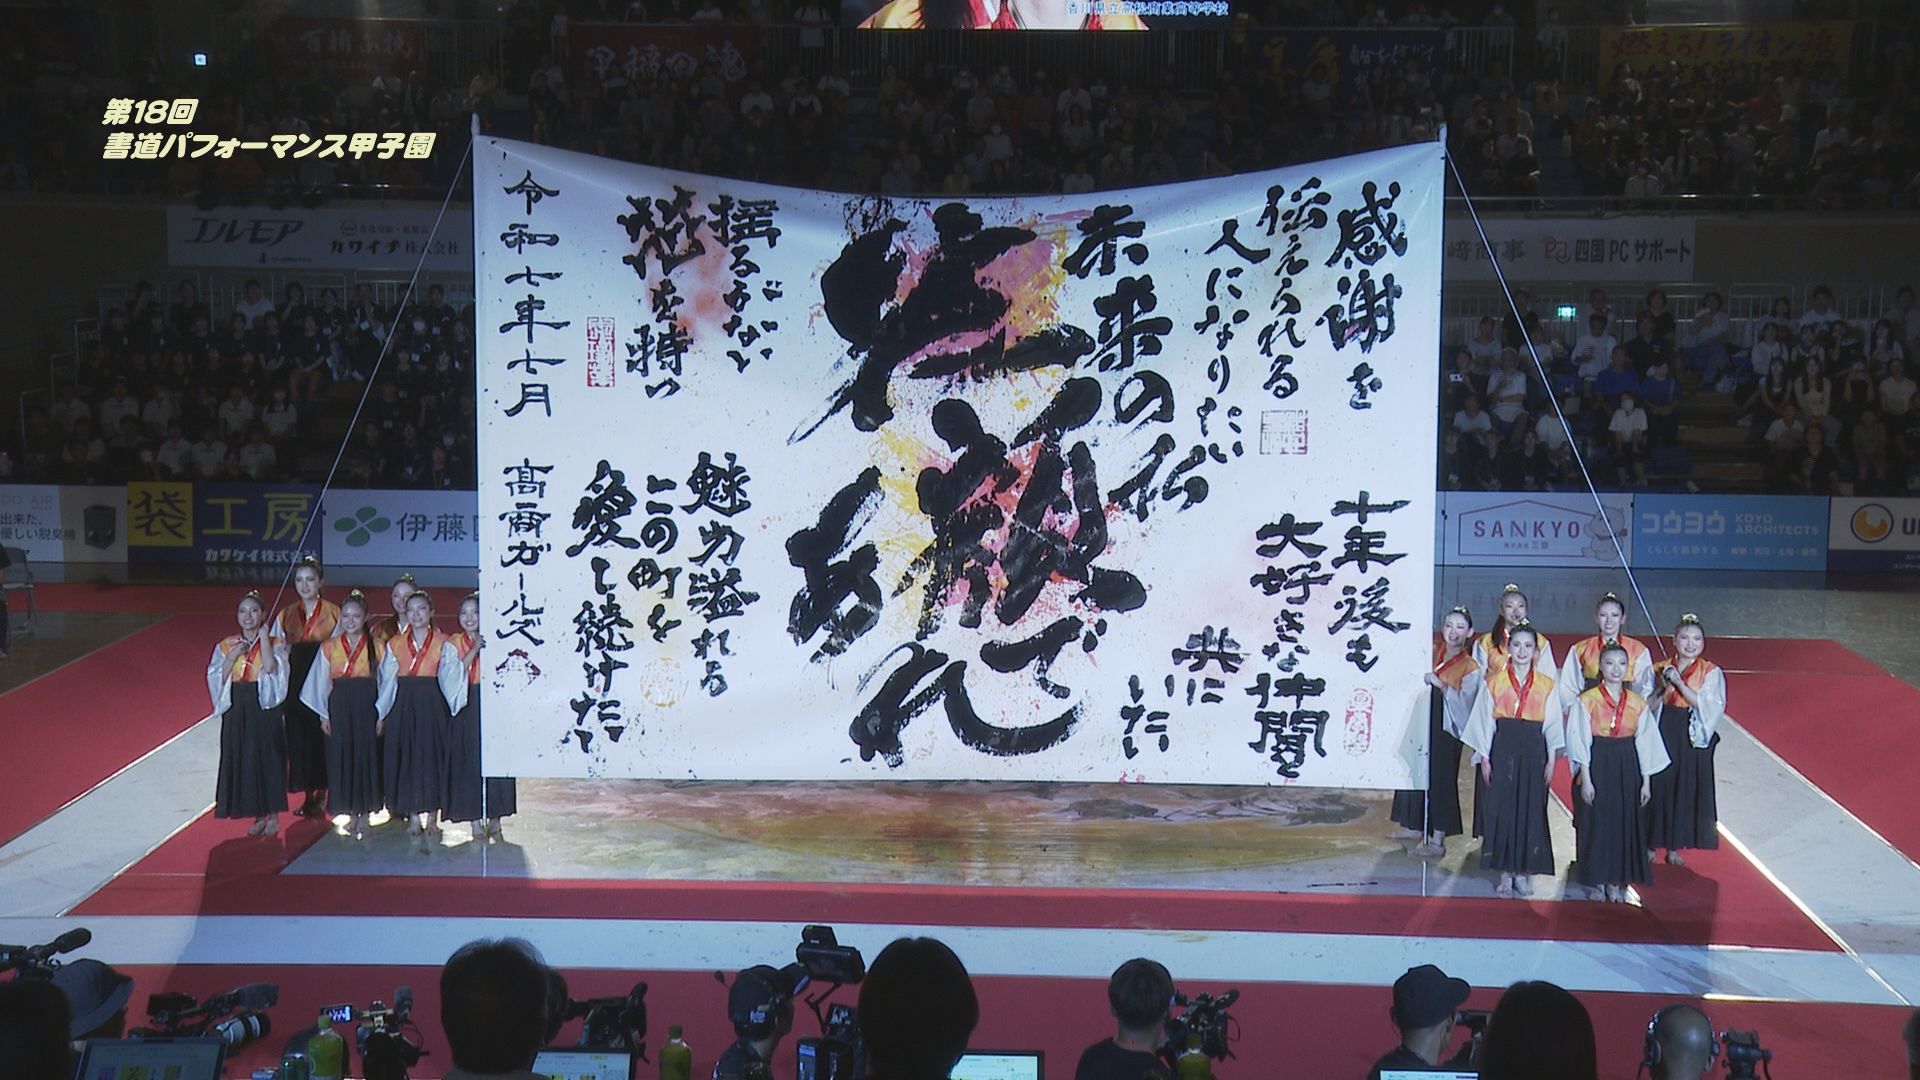 香川県立高松商業高等学校
第18回
書道パフォーマンス甲子園
感謝を
伝えられる
人になりたい
十年後も
大好きな仲間と
共に
いたい
未来の私
笑顔で
あれ
揺るがない
を持つ
魅力溢れる
この町を
愛し続けたい
令和七年七月
高商ガールズ
エルモア
カワイチ株式会社
崎商事
四国PCサポート
出来た、
優しい脱臭機
袋工房
カクケイ株式会社
伊藤
SANKYO
株式会社三協
コウヨウ
KOYO
ARCHITECTS
燃えろ!ライオン魂